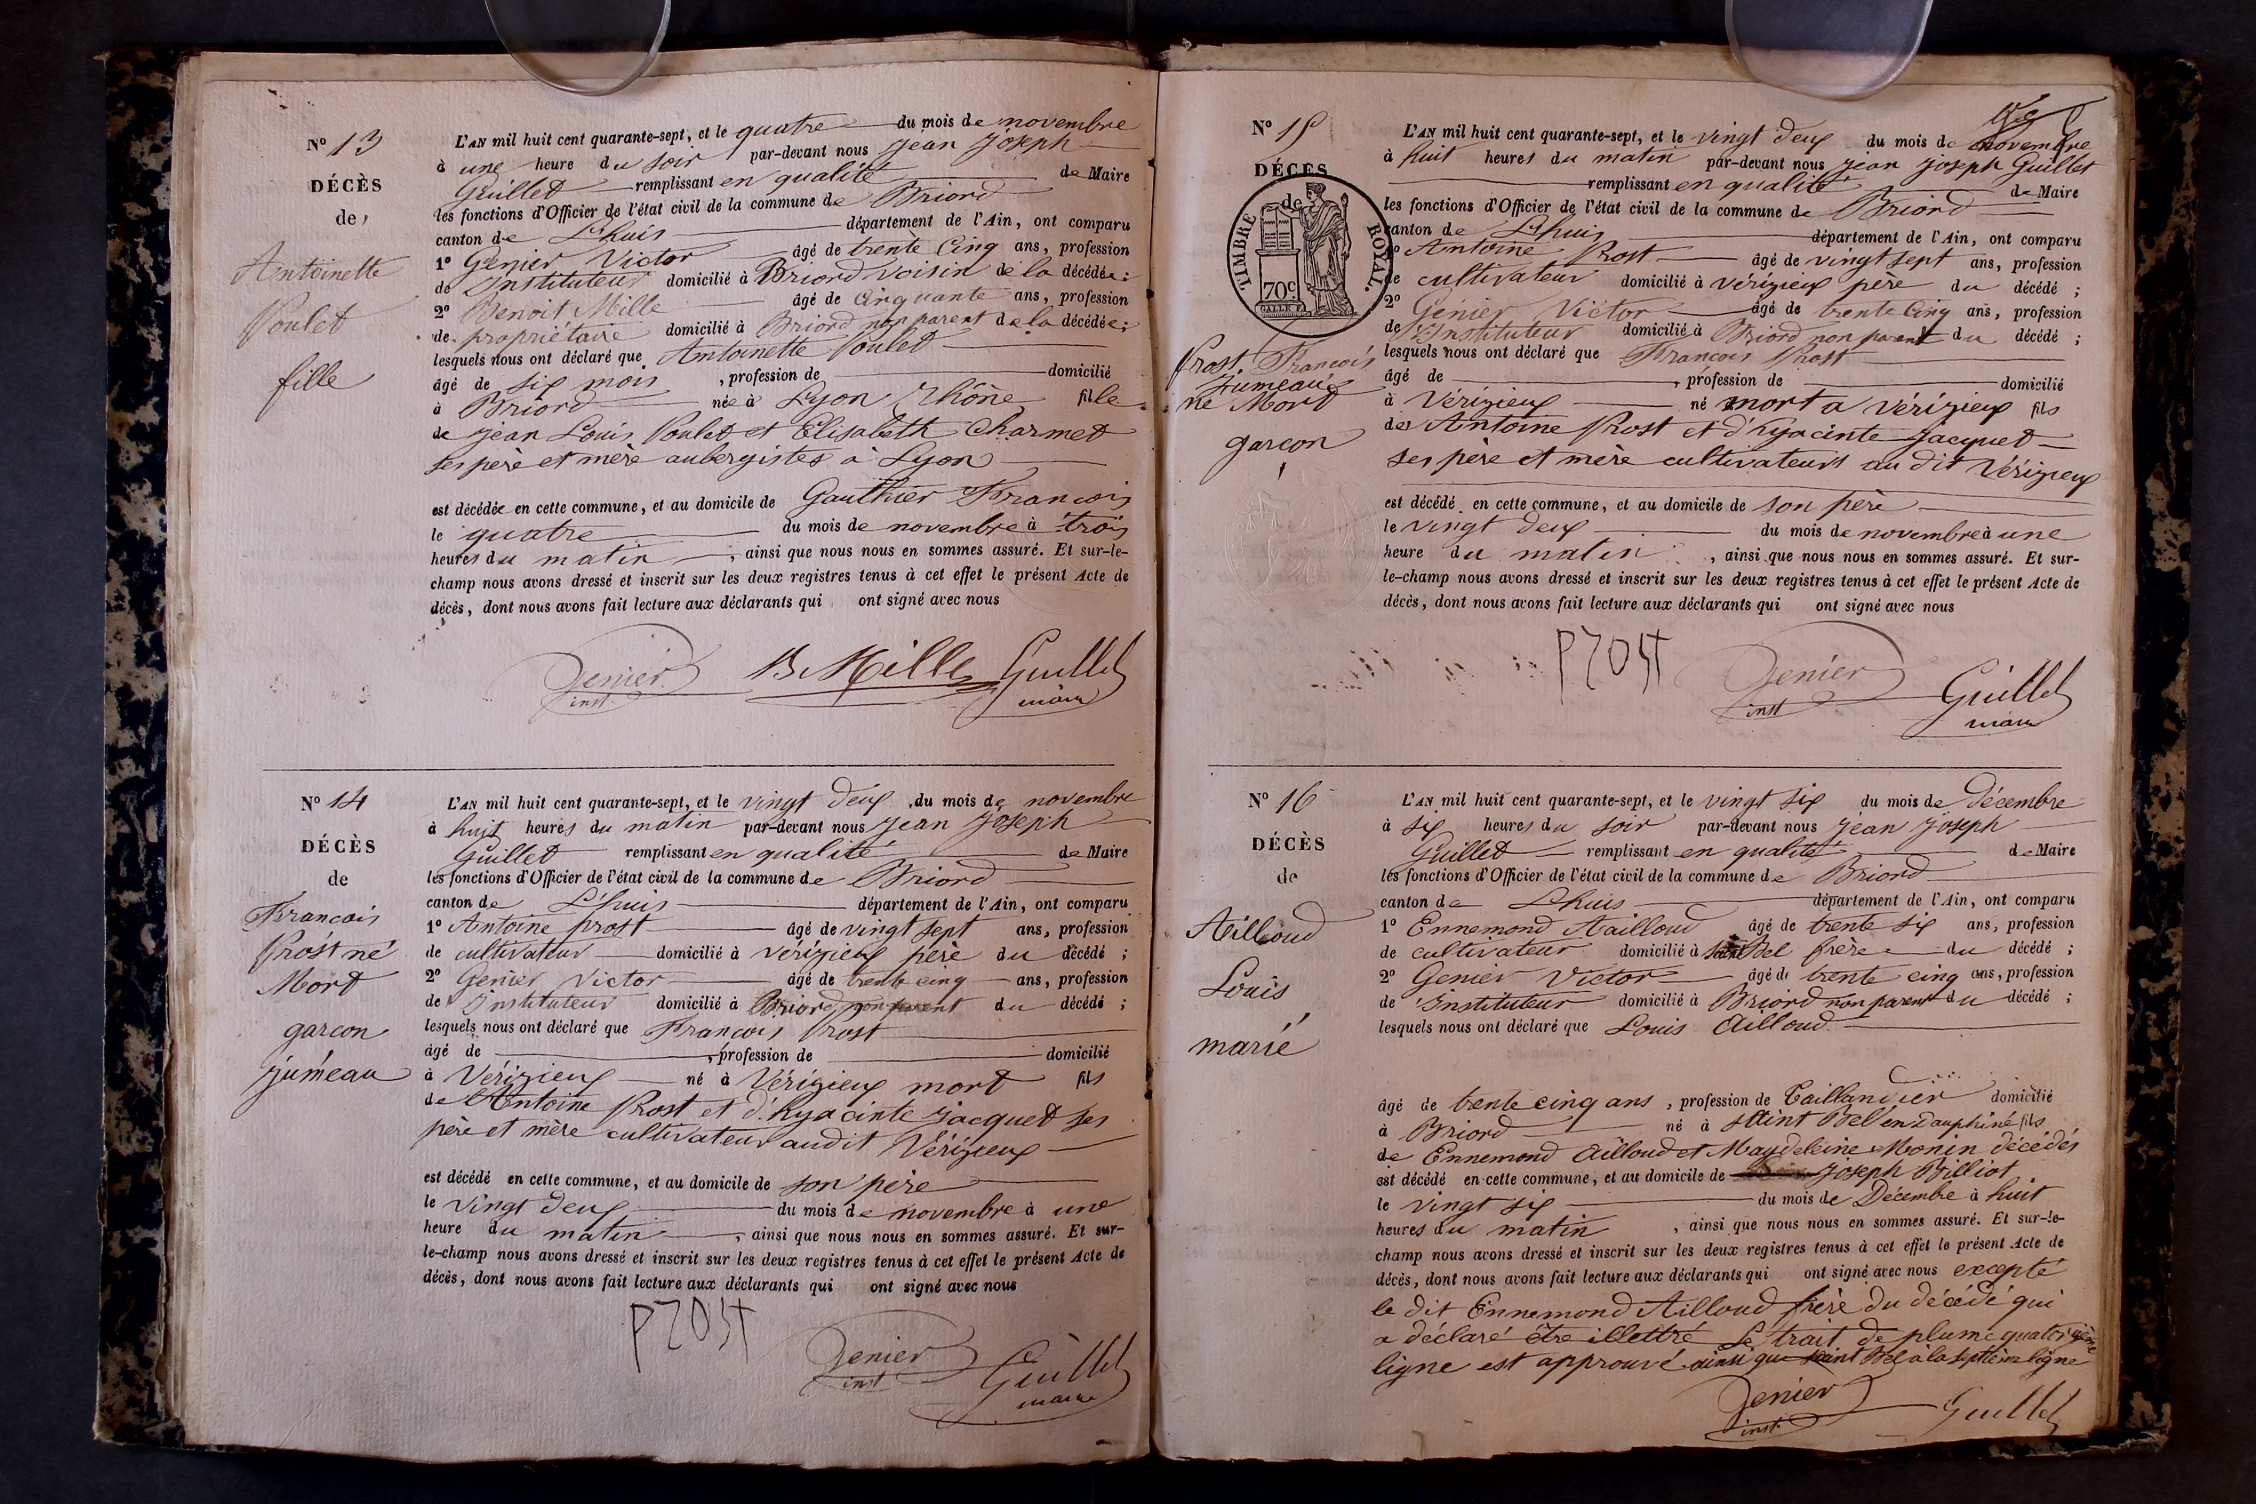 Nº 13
DÉCÈS
de
Antoinette
Poulet
fille
L'AN mil huit cent quarante-sept, et le quatre du mois de novembre
à une heure du soir par-devant nous jean joseph
Guillet remplissant en qualité de Maire
les fonctions d'Officier de l'état civil de la commune de Briord
canton de Lhuis département de l'Ain, ont comparu
1º Genier Victor âgé de trente Cinq ans, profession
de Instituteur domicilié à Briord voisin de la décédée;
2º Benoit Mille âgé de Cinquante ans, profession
de propriétaire domicilié à Briord non parent de la décédée;
lesquels nous ont déclaré que Antoinette Poulet
âgé de six mois, profession de domicilié
à Briord née à Lyon Rhône fille
de jean Louis Poulet et Elisabeth Charmet
ses père et mère aubergistes à Lyon
est décédée en cette commune, et au domicile de Gauthier François
le quatre du mois de novembre à trois
heures du matin, ainsi que nous nous en sommes assuré. Et sur-le-
champ nous avons dressé et inscrit sur les deux registres tenus à cet effet le présent Acte de
décès, dont nous avons fait lecture aux déclarants qui ont signé avec nous
Genier inst. B Mille Guillet maire
Nº 14
DÉCÈS
de
Francois
Prost né
Mort
garcon
jumeau
L'AN mil huit cent quarante-sept, et le vingt deux du mois de novembre
à huit heures du matin par-devant nous jean joseph
Guillet remplissant en qualité de Maire
les fonctions d'Officier de l'état civil de la commune de Briord
canton de Lhuis département de l'Ain, ont comparu
1º Antoine prost âgé de vingt sept ans, profession
de cultivateur domicilié à vérizieux père du décédé;
2º Genier Victor âgé de trente cinq ans, profession
de Instituteur domicilié à Briord non parent du décédé;
lesquels nous ont déclaré que Francois Prost
âgé de , profession de domicilié
à Vérizieux né à Vérizieux mort fils
de Antoine Prost et d'hyacinte jacquet ses
père et mère cultivateurs audit Vérizieux
est décédé en cette commune, et au domicile de son père
le vingt deux du mois de novembre à une
heure du matin, ainsi que nous nous en sommes assuré. Et sur-
le-champ nous avons dressé et inscrit sur les deux registres tenus à cet effet le présent Acte de
décès, dont nous avons fait lecture aux déclarants qui ont signé avec nous
Prost Genier inst Guillet maire
Nº 15
DÉCÈS
de
TIMBRE ROYAL.
70c
Prost François
jumeau
né Mort
garcon
L'AN mil huit cent quarante-sept, et le vingt deux du mois de novembre
à huit heures du matin par-devant nous jean joseph Guillet
remplissant en qualité de Maire
les fonctions d'Officier de l'état civil de la commune de Briord
canton de Lhuis département de l'Ain, ont comparu
1º Antoine Prost âgé de vingt sept ans, profession
de cultivateur domicilié à vérizieux père du décédé;
2º Genier Victor âgé de trente Cinq ans, profession
de Instituteur domicilié à Briord non parent du décédé;
lesquels nous ont déclaré que Francois Prost
âgé de , profession de domicilié
à Vérizieux né mort a vérizieux fils
de Antoine Prost et d'hyacinte jacquet
ses père et mère cultivateurs au dit Vérizieux
est décédé en cette commune, et au domicile de son père
le vingt deux du mois de novembre à une
heure du matin, ainsi que nous nous en sommes assuré. Et sur-
le-champ nous avons dressé et inscrit sur les deux registres tenus à cet effet le présent Acte de
décès, dont nous avons fait lecture aux déclarants qui ont signé avec nous
Prost Genier inst Guillet maire
Nº 16
DÉCÈS
de
Ailloud
Louis
marié
L'AN mil huit cent quarante-sept, et le vingt six du mois de décembre
à six heures du soir par-devant nous jean joseph
Guillet remplissant en qualité de Maire
les fonctions d'Officier de l'état civil de la commune de Briord
canton de Lhuis département de l'Ain, ont comparu
1º Ennemond Aailloud âgé de trente six ans, profession
de cultivateur domicilié à saint Bel frère du décédé;
2º Genier Victor âgé de trente cinq ans, profession
de Instituteur domicilié à Briord non parent du décédé;
lesquels nous ont déclaré que Louis Ailloud
âgé de trente cinq ans, profession de Taillandier domicilié
à Briord né à saint Bel en Dauphiné fils
de Ennemond Ailloud et Magdeleine Monin décédés
est décédé en cette commune, et au domicile de Joseph Billiot
le vingt six du mois de Décembre à huit
heures du matin, ainsi que nous nous en sommes assuré. Et sur-le-
champ nous avons dressé et inscrit sur les deux registres tenus à cet effet le présent Acte de
décès, dont nous avons fait lecture aux déclarants qui ont signé avec nous excepté
le dit Ennemond Ailloud frère du décédé qui
a déclaré être illettré Le trait de plume quatorzième
ligne est approuvé ainsi que saint Bel à la septième ligne
Genier inst. Guillet